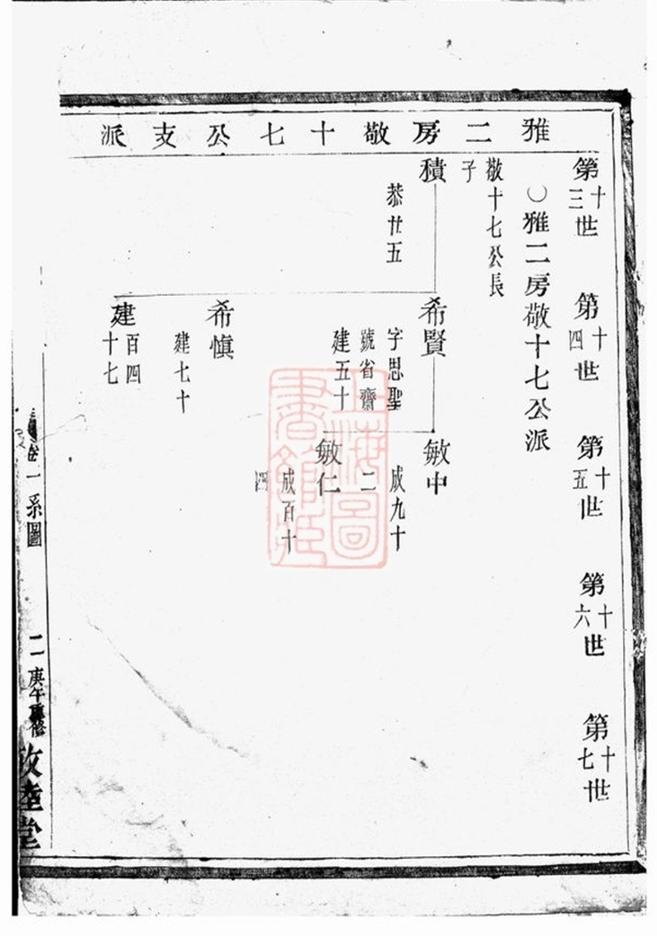 雅二房敬十七公支派
第十三世
第十四世
第十五世
第十六世
第十七世
○雅二房敬十七公派
敬十七公長
子
積
恭廿五
希賢
字思聖
號省齋
建五十
希慎
建七十
建
百四
十七
敏中
成九十
二
敏仁
成百十
四
卷一系圖
二
庚午重修
敦睦堂
上海圖書館藏